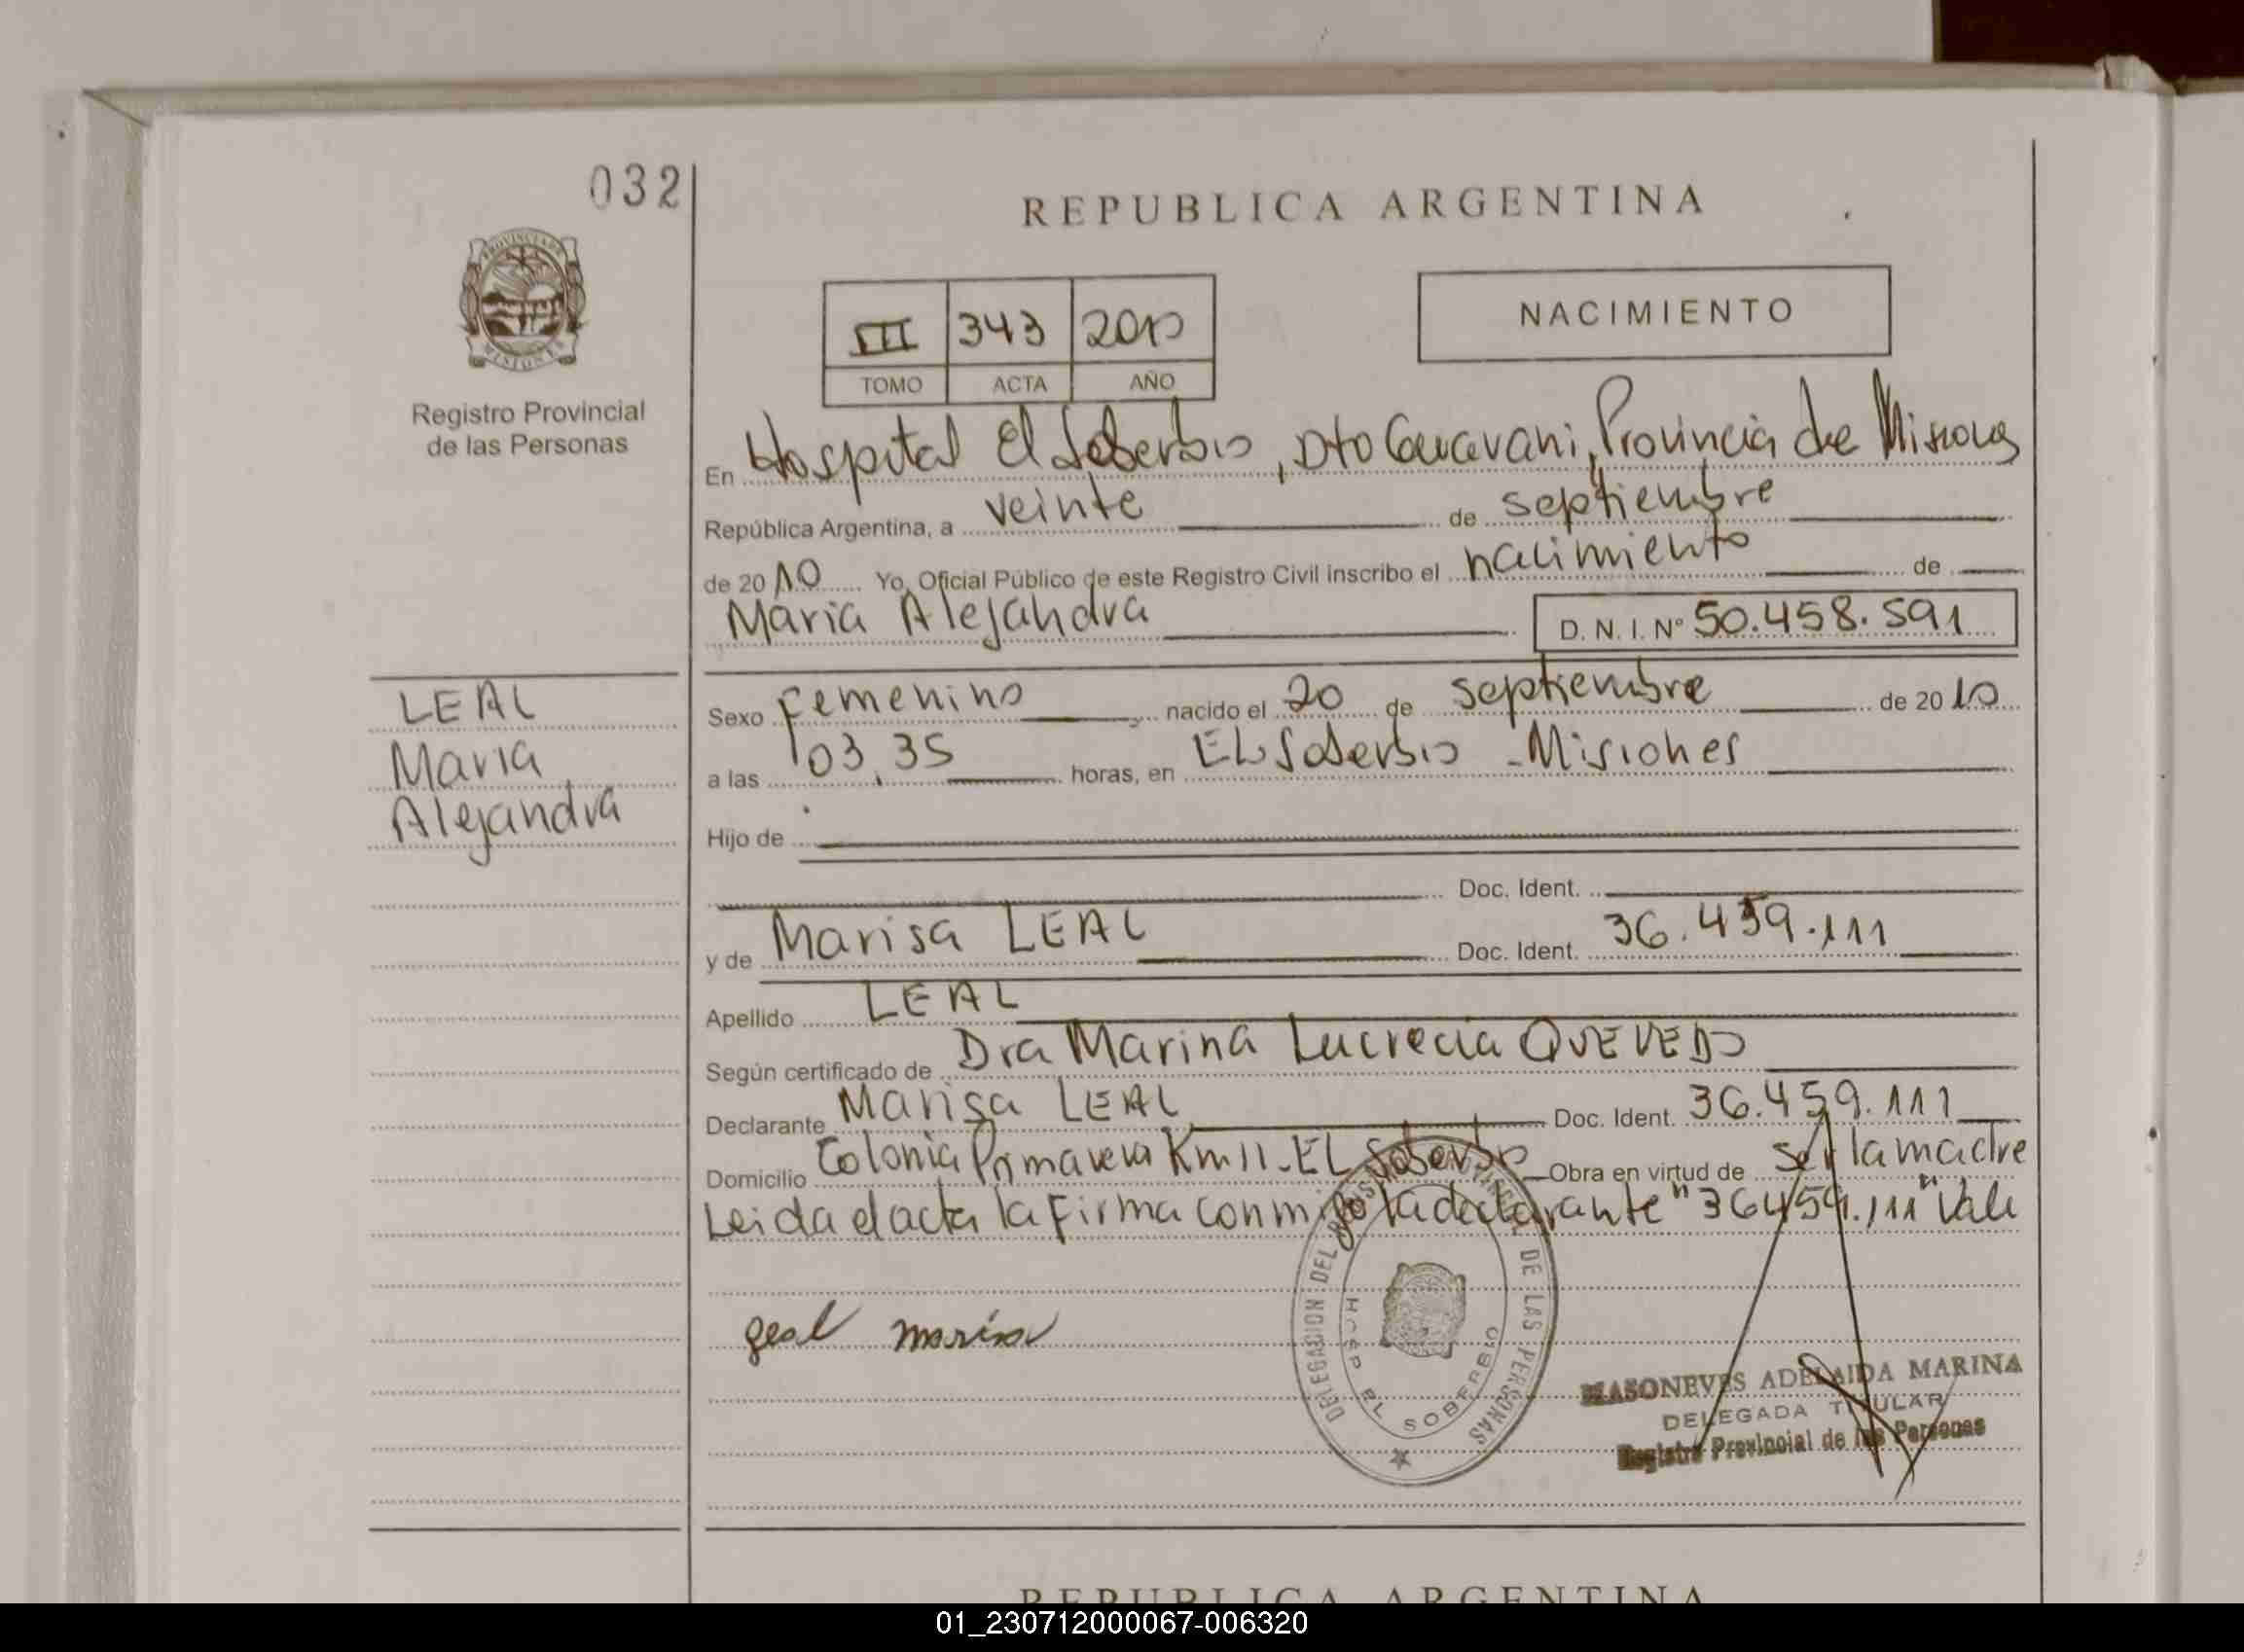 032
REPUBLICA ARGENTINA
III 343 2010
TOMO ACTA AÑO
NACIMIENTO
PROVINCIA DE
MISIONES
Registro Provincial
de las Personas
En Hospital El Soberbio, Dto Guaravani, Provincia de Misiones
República Argentina, a veinte de septiembre
de 2010 Yo, Oficial Público de este Registro Civil inscribo el nacimiento de
Maria Alejandra D.N.I. Nº 50.458.591
LEAL
Maria
Alejandra
Sexo Femenino nacido el 20 de septiembre de 2010
a las 03,35 horas, en EL Soberbio - Misiones
Hijo de
Doc. Ident.
y de Marisa LEAL Doc. Ident. 36.459.111
Apellido LEAL
Según certificado de Dra Marina Lucrecia QUEVEDO
Declarante Marisa LEAL Doc. Ident. 36.459.111
Domicilio Colonia Primavera Km 11 - EL Soberbio Obra en virtud de ser la madre
Leida el acta la Firma conmigo la declarante "36459.111" Vale
geal marisa
DELEGACION DEL REGISTRO PROVINCIAL DE LAS PERSONAS
EL SOBERBIO
MASONEVES ADELAIDA MARINA
DELEGADA TITULAR
Registro Provincial de las Personas
REPUBLICA ARGENTINA
01_230712000067-006320